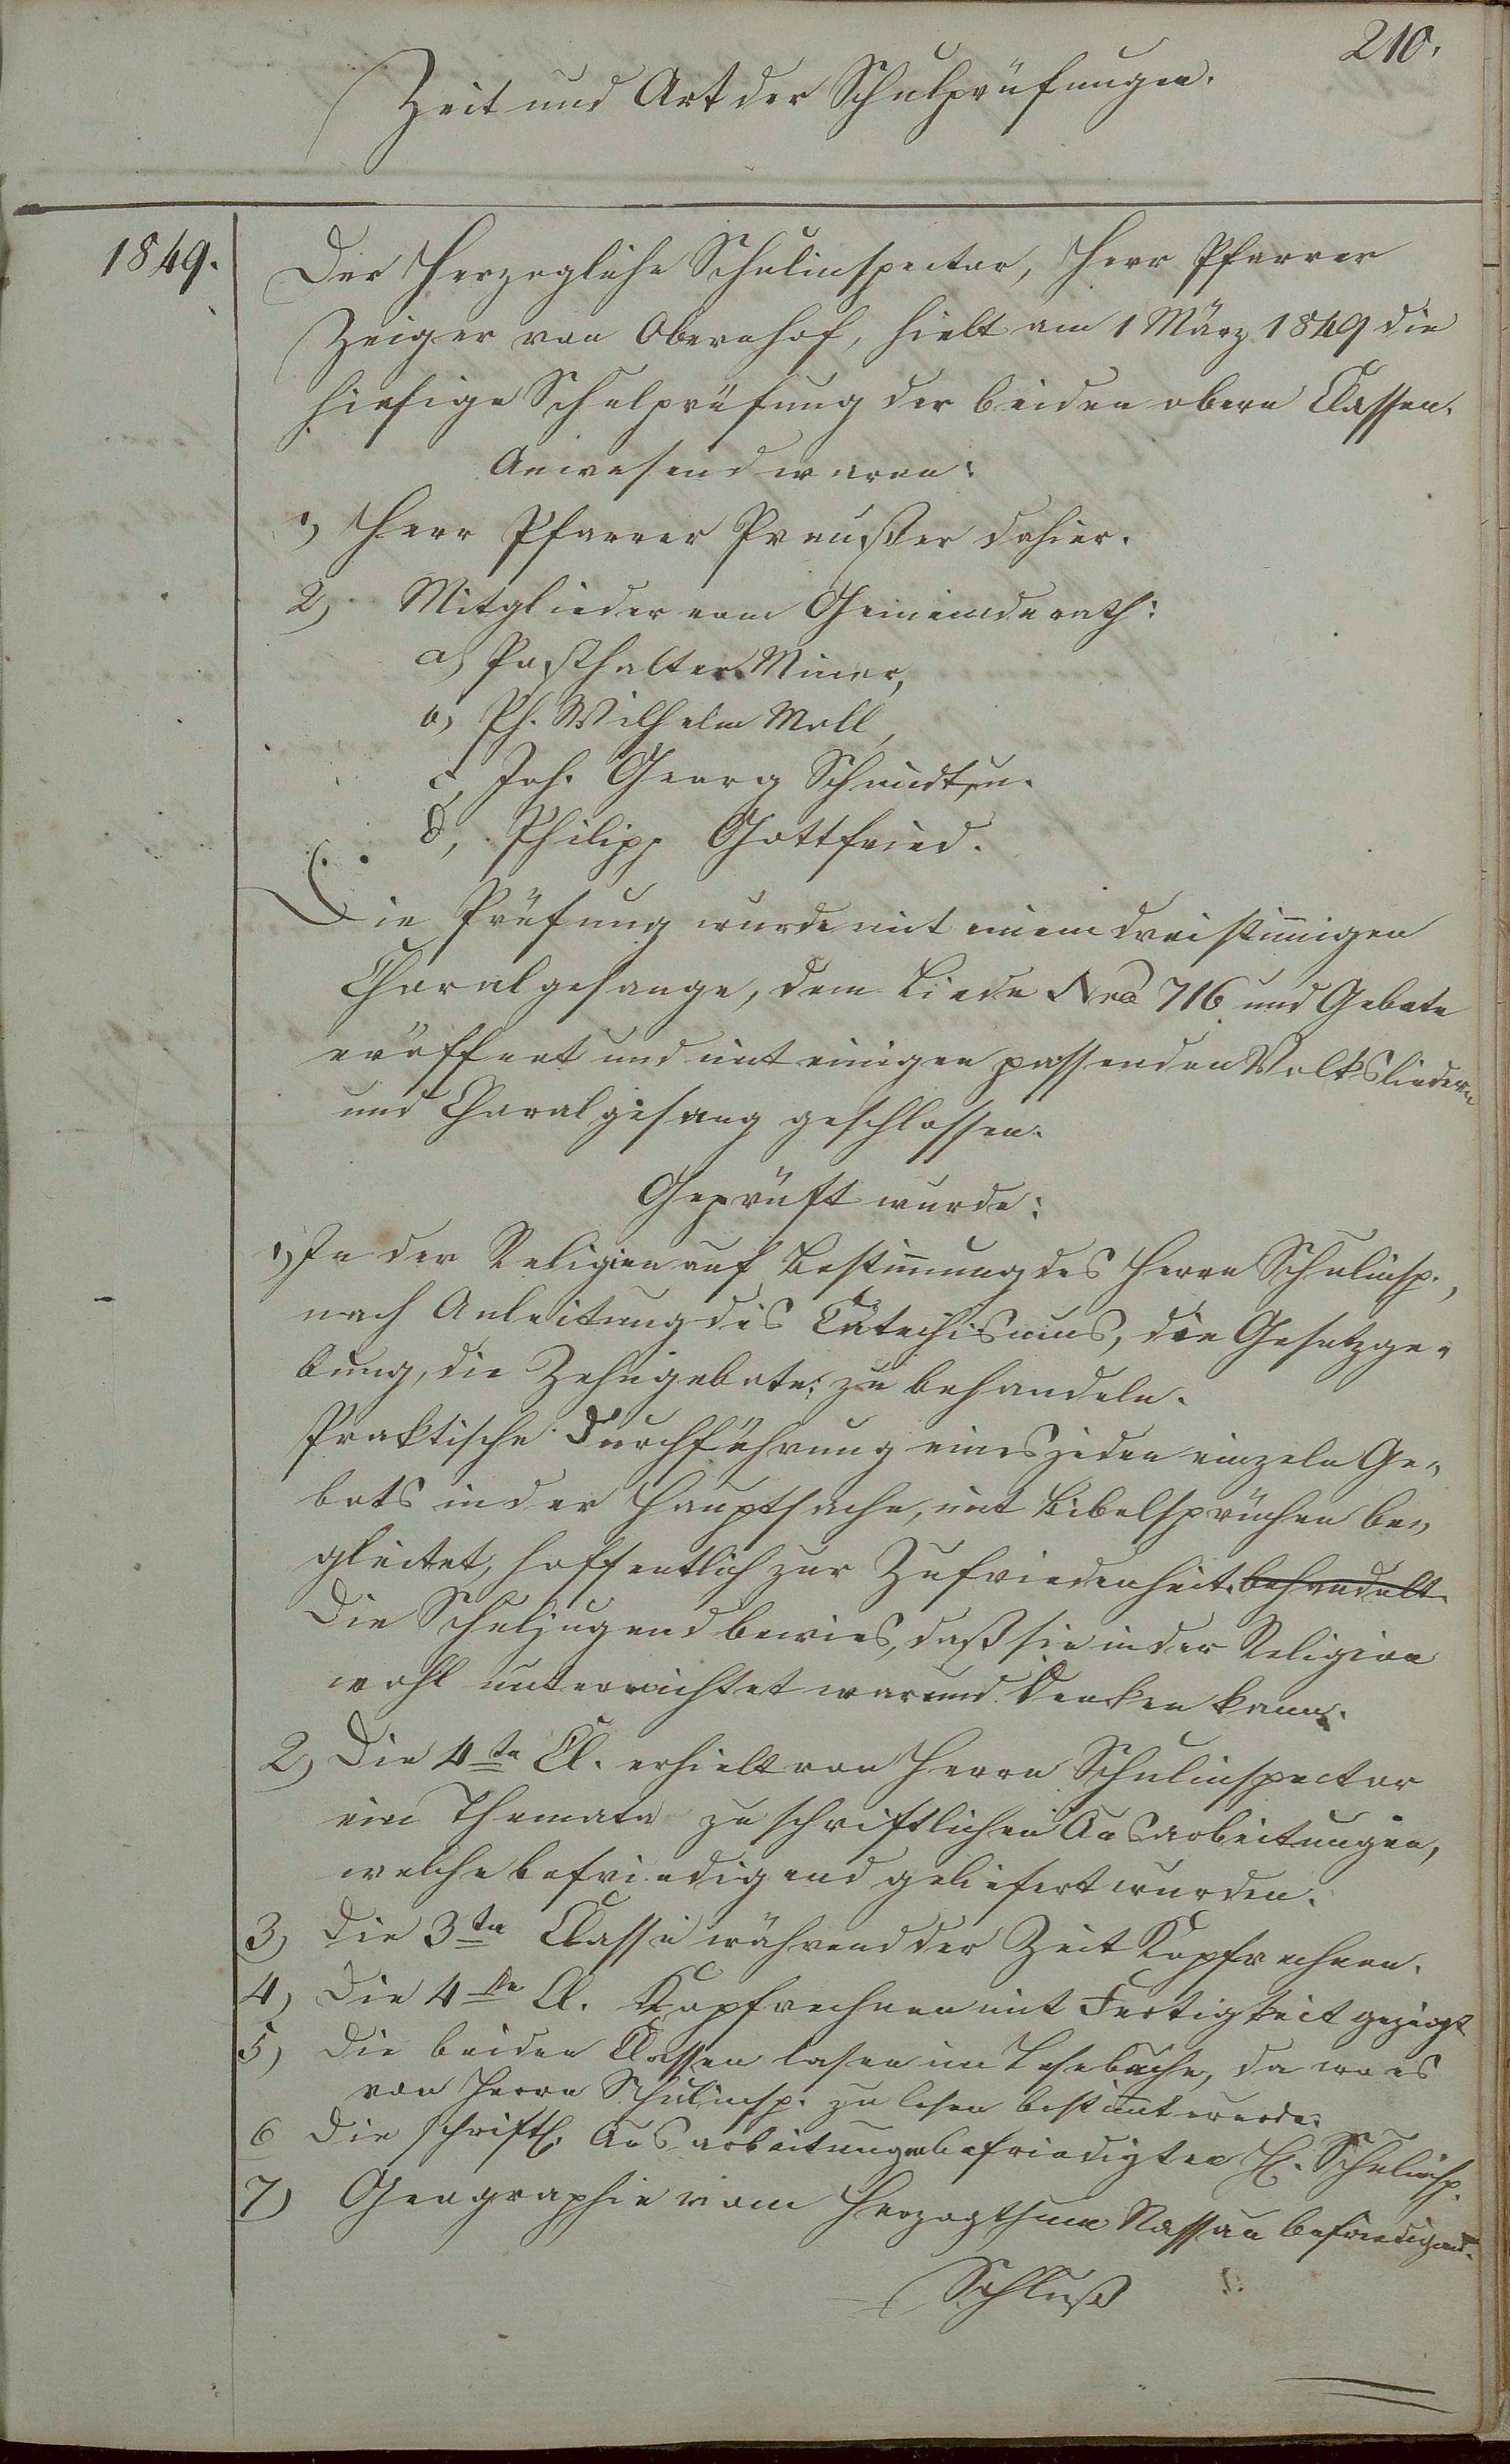 210.
Zeit und Art der Schulprüfungen.
1849.
Der Herzogliche Schulinspector, Herr Pfarrer
Zeiger von Obernhof, hielt am 1 März 1849 die
hiesige Schulprüfung der beiden obern Classen.
Anwesend waren:
1) Herr Pfarrer Preußer dahier.
2) Mitglieder vom Gemeinderath:
a) Posthalter Minor,
b) Ph. Wilhelm Moll,
c, Joh. Georg Schmidt sen.
d, Philipp Gottfried.
Die Prüfung wurde mit einem dreistim̅igen
Choralgesange, dem Liede Nro 716 und Gebete
eröffnet und mit einigen passenden Volksliedern
und Choralgesang geschlossen.
Geprüft wurde:
1) In der Religion auf Bestim̅ung des Herrn Schulinsp.,
nach Anleitung des Catechismus, die Gesetzge-
bung, die Zehngebote; zu behandeln.
Praktische Durchführung eines jeden einzeln Ge-
bots in der Hauptsache, mit Bibelsprüchen be-
gleitet, hoffentlich zur Zufriedenheit. behandelt.
Die Schuljugend bewies, daß sie in der Religion
wohl unterrichtet war und denken kann.
2) Die 4te Cl. erhielt von Herrn Schulinspector
ein Themata zu schriftlichen Ausarbeitungen,
welche befriedigend geliefert wurden.
3) Die 3te Classe während der Zeit Kopfrechnen.
4) Die 4te Cl. Kopfrechnen mit Fertigkeit gezeigt
5) Die beiden Classen lasen im Lesebuche, da wo es
von Herrn Schulinsp. zu lesen bestim̅t wurde.
6 Die schriftl. Ausarbeitungen befriedigten H. Schulinsp.
7) Geographie vom Herzogthum Nassau befriedigend.
Schluß